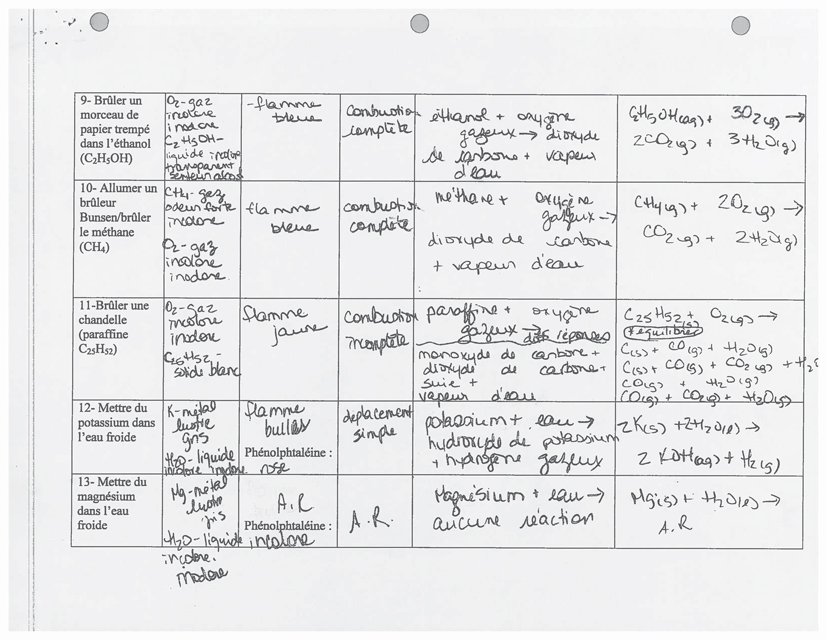 9- Brûler un
morceau de
papier trempé
dans l'éthanol
(C2H5OH)
O2-gaz
incolore
inodore
C2H5OH-
liquide incolore
transparent
senteur alcool
-flamme
bleue
combustion
complète
éthanol + oxygène
gazeux → dioxyde
de carbone + vapeur
d'eau
C2H5OH(aq) + 3O2(g) →
2CO2(g) + 3H2O(g)
10- Allumer un
brûleur
Bunsen/brûler
le méthane
(CH4)
CH4-gaz
odeur forte
incolore
O2-gaz
incolore
inodore
flamme
bleue
combustion
complète
méthane + oxygène
gazeux →
dioxyde de carbone
+ vapeur d'eau
CH4(g) + 2O2(g) →
CO2(g) + 2H2O(g)
11-Brûler une
chandelle
(paraffine
C25H52)
O2-gaz
incolore
inodore
C25H52-
solide blanc
flamme
jaune
combustion
incomplète
paraffine + oxygène
gazeux → diff réponses
monoxyde de carbone +
dioxyde de carbone +
suie +
vapeur d'eau
C25H52(s) + O2(g) →
équilibrer
C(s) + CO(g) + H2O(g)
C(s) + CO(g) + CO2(g) + H2O
CO(g) + H2O(g)
CO(g) + CO2(g) + H2O(g)
12- Mettre du
potassium dans
l'eau froide
K-métal
lustre
gris
H2O-liquide
incolore inodore
flamme
bulles
Phénolphtaléine :
rose
deplacement
simple
potassium + eau →
hydroxyde de potassium
+ hydrogène gazeux
2K(s) + 2H2O(l) →
2 KOH(aq) + H2(g)
13- Mettre du
magnésium
dans l'eau
froide
Mg-métal
lustre
gris
H2O-liquide
incolore.
inodore
A.R
Phénolphtaléine :
incolore
A.R.
Magnésium + eau →
aucune réaction
Mg(s) + H2O(l) →
A.R